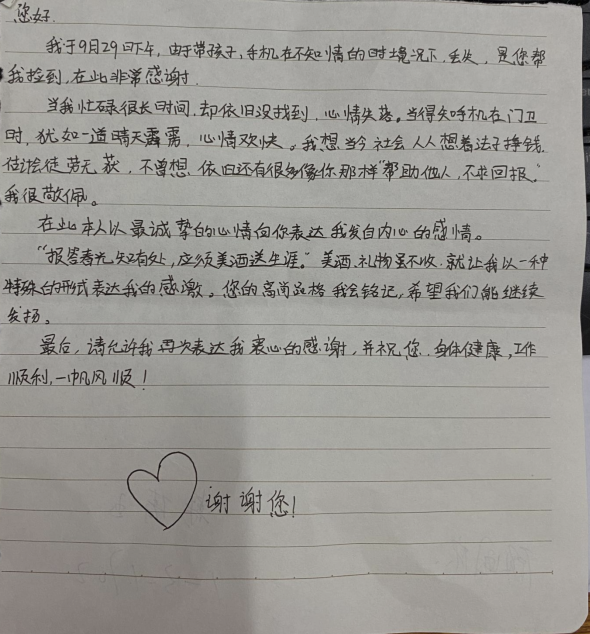 您好.
我于9月29日下午,由于带孩子,手机在不知情的的境况下,丢失,是您帮
我捡到,在此非常感谢.
当我忙碌很长时间,却依旧没找到,心情失落。当得知手机在门卫
时,犹如一道晴天霹雳,心情欢快。我想当今社会人人想着法子挣钱,
往往会徒劳无获,不曾想,依旧还有很多像你那样“帮助他人,不求回报.”
我很敬佩。
在此本人以最诚挚的心情向你表达我发自内心的感情。
“报答春光知有处,应须美酒送生涯。”美酒.礼物虽不收.就让我以一种
特殊的形式表达我的感激。您的高尚品格我会铭记,希望我们能继续
发扬。
最后,请允许我再次表达我衷心的感谢,并祝您.身体健康,工作
顺利,一帆风顺!
谢谢您!